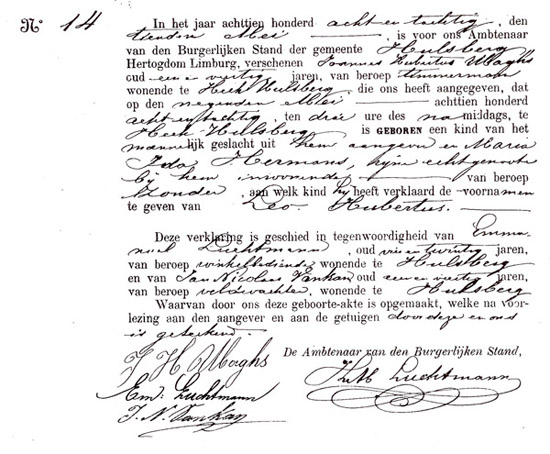 N° 14
In het jaar achttien honderd acht en tachtig, den
tienden Mei, is voor ons Ambtenaar
van den Burgerlijken Stand der gemeente Hulsberg
Hertogdom Limburg, verschenen Joannes Hubertus Maghs
oud een en veertig jaren, van beroep timmerman
wonende te Heek Hulsberg, die ons heeft aangegeven, dat
op den negenden Mei achttien honderd
acht en tachtig, ten drie ure des namiddags, te
Heek Hulsberg is GEBOREN een kind van het
mannelijk geslacht uit hem aangever en Maria
Ida Hermans, zijne echtgenoote
bij hem inwonende van beroep
zonder, aan welk kind hij heeft verklaard de voornamen
te geven van Leo Hubertus.
Deze verklaring is geschied in tegenwoordigheid van Emma-
nuel Luchtmann, oud vier en twintig jaren,
van beroep winkelbediende wonende te Hulsberg
en van Jan Nicolaas Vankan oud een en veertig jaren,
van beroep veldwachter, wonende te Hulsberg
Waarvan door ons deze geboorte-akte is opgemaakt, welke na voor-
lezing aan den aangever en aan de getuigen door deze en ons
is geteekend.
J H Maghs
De Ambtenaar van den Burgerlijken Stand,
Em: Luchtmann
Luchtmann
J. N. Vankan